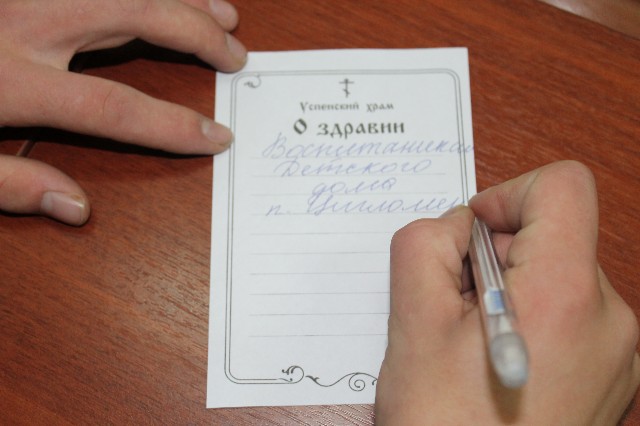 Успенский храм
О здравии
Воспитаникам
Детского
дома
п. Цигломен